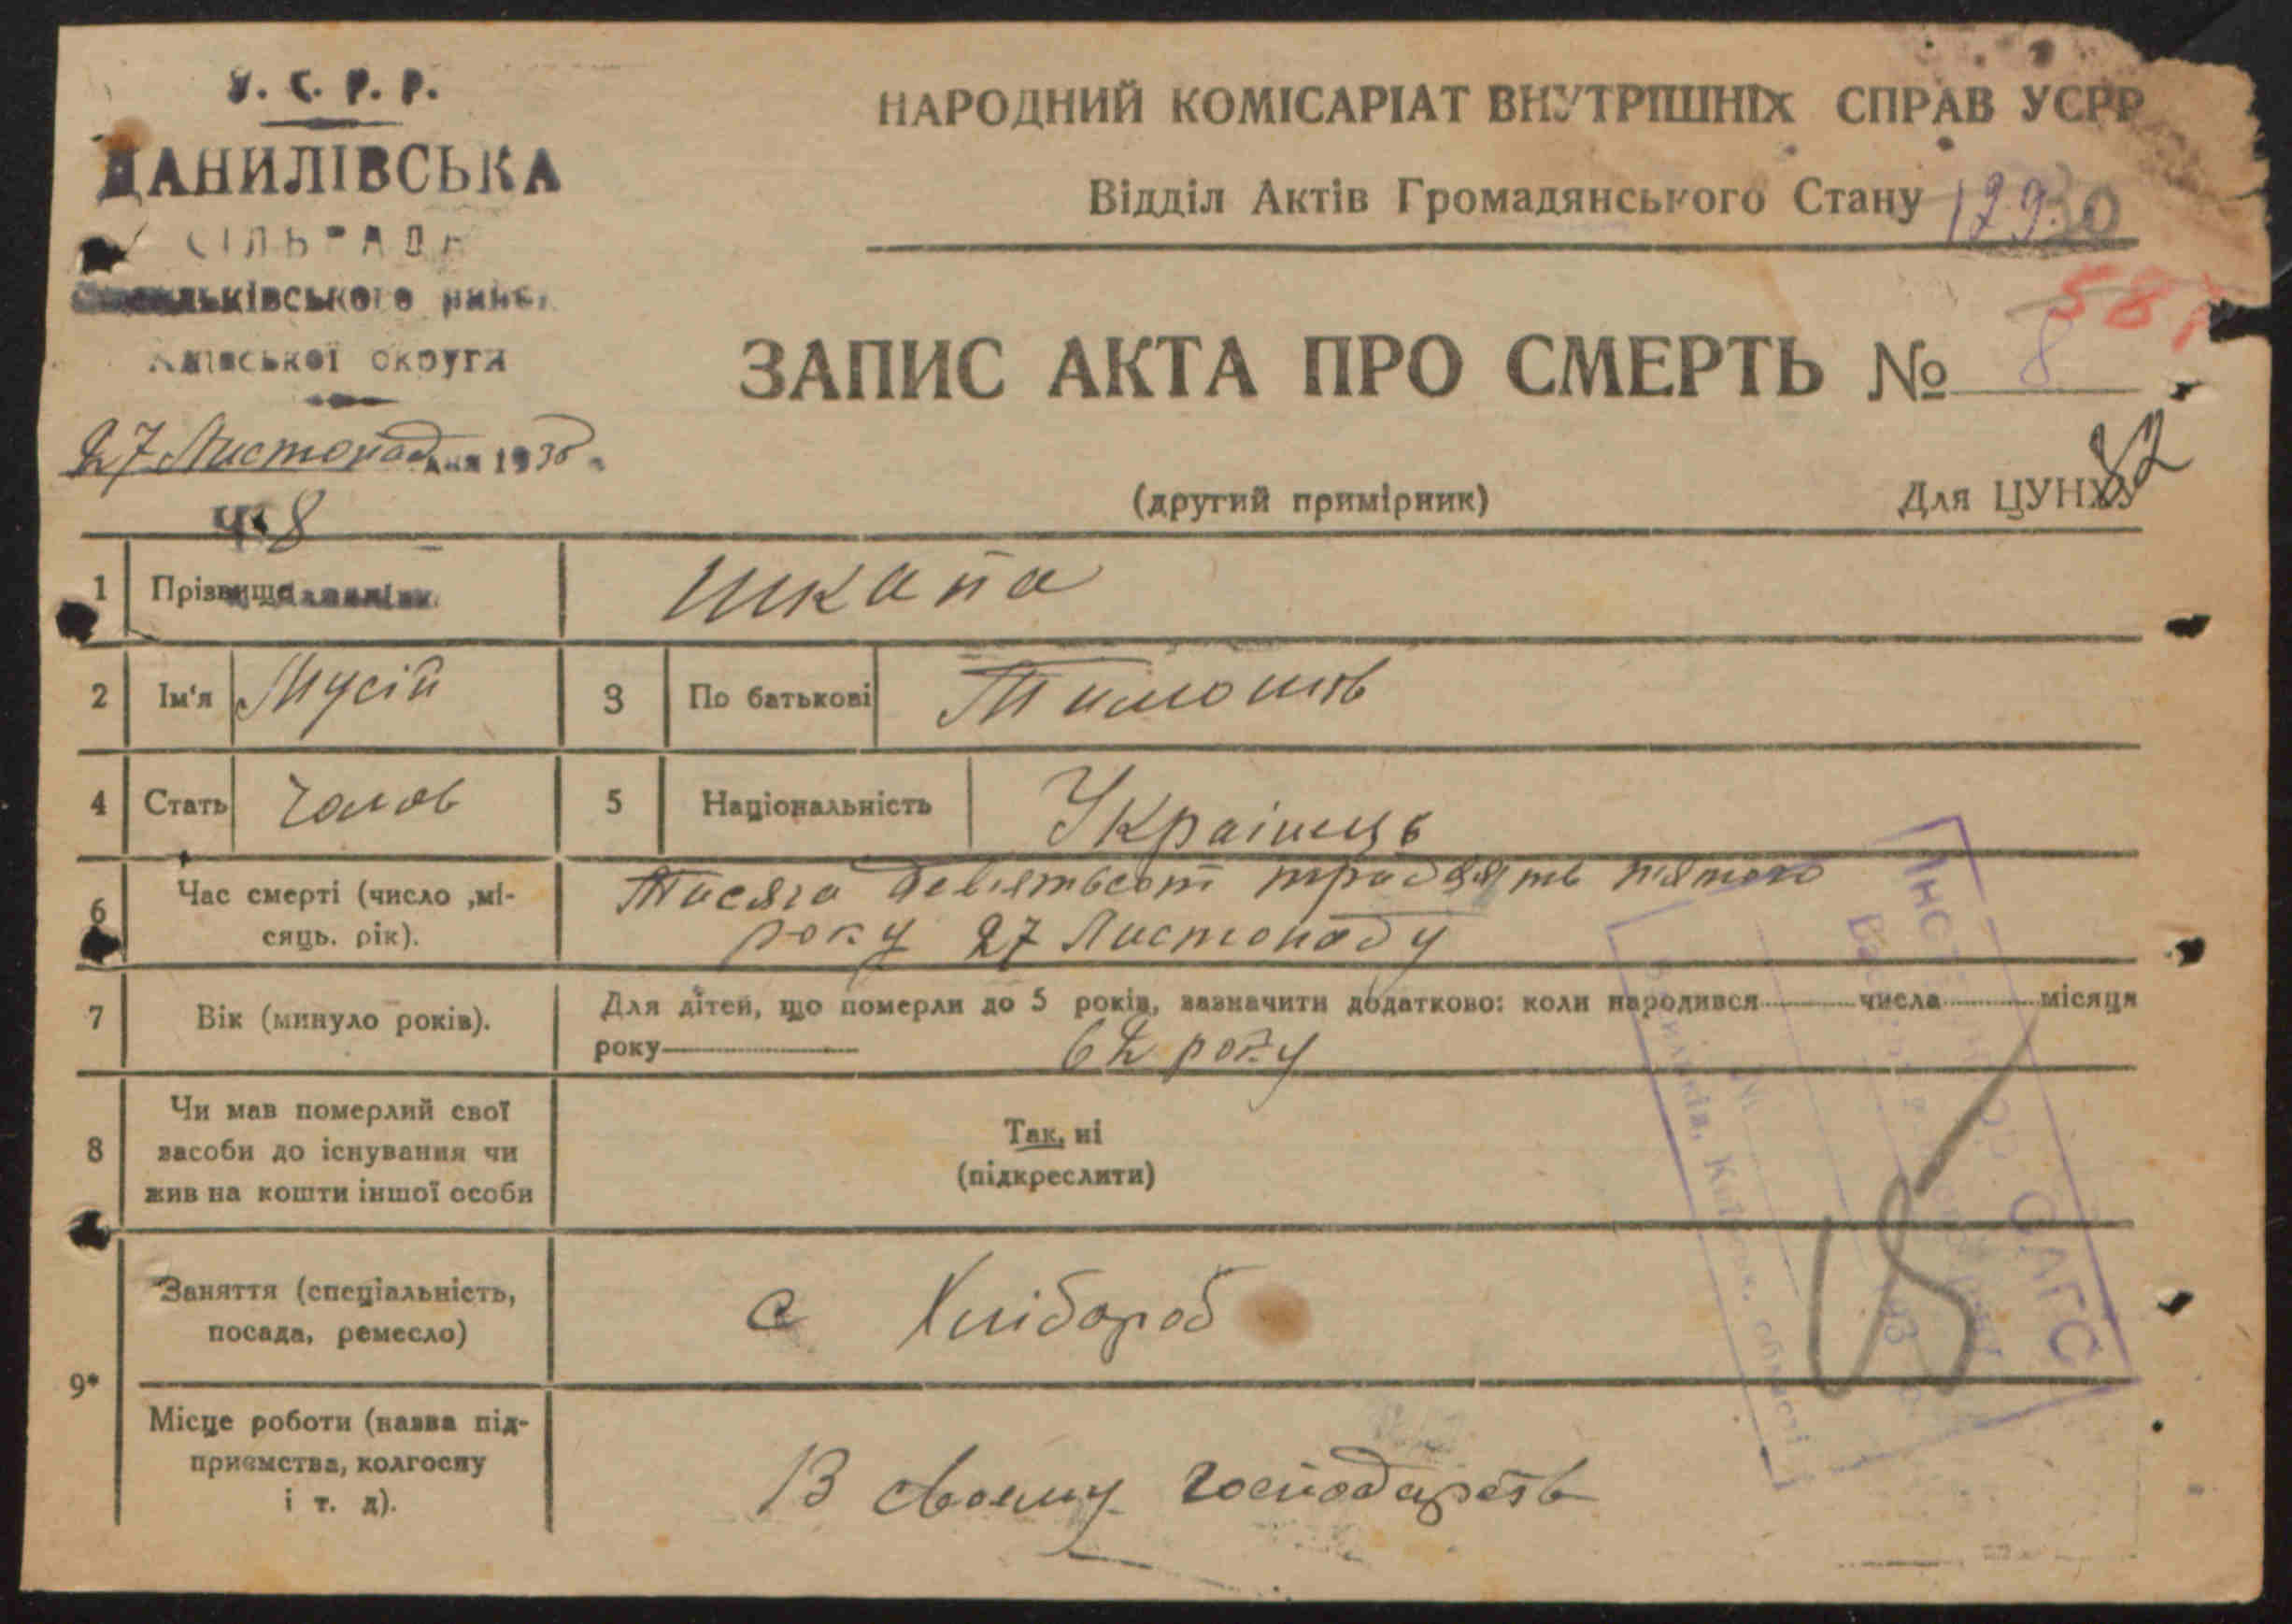 У. С. Р. Р.
ДАНИЛІВСЬКА
СІЛЬРАДА
Київської округи
27 Листопад дня 1935
Ч. 8
НАРОДНИЙ КОМІСАРІАТ ВНУТРІШНІХ СПРАВ УСРР
Відділ Актів Громадянського Стану
ЗАПИС АКТА ПРО СМЕРТЬ № 8
(другий примірник)
Для ЦУНХУ
1 Прізвище Шкапа
2 Ім'я Мусій 3 По батькові Тимошів
4 Стать Чолов 5 Національність Украінець
6 Час смерті (число ,мі-
сяць. рік).
Тисяча девятьсот тридцять пятого
року 27 Листопаду
7 Вік (минуло років).
Для дітей, що померли до 5 років, зазначити додатково: коли народився числа місяця
року 62 року
8 Чи мав померлий свої
засоби до існування чи
жив на кошти іншої особи
Так, ні
(підкреслити)
9*
Заняття (спеціальність,
посада, ремесло)
Хлібороб
Місце роботи (назва під-
приємства, колгоспу
і т. д).
В своему господарств